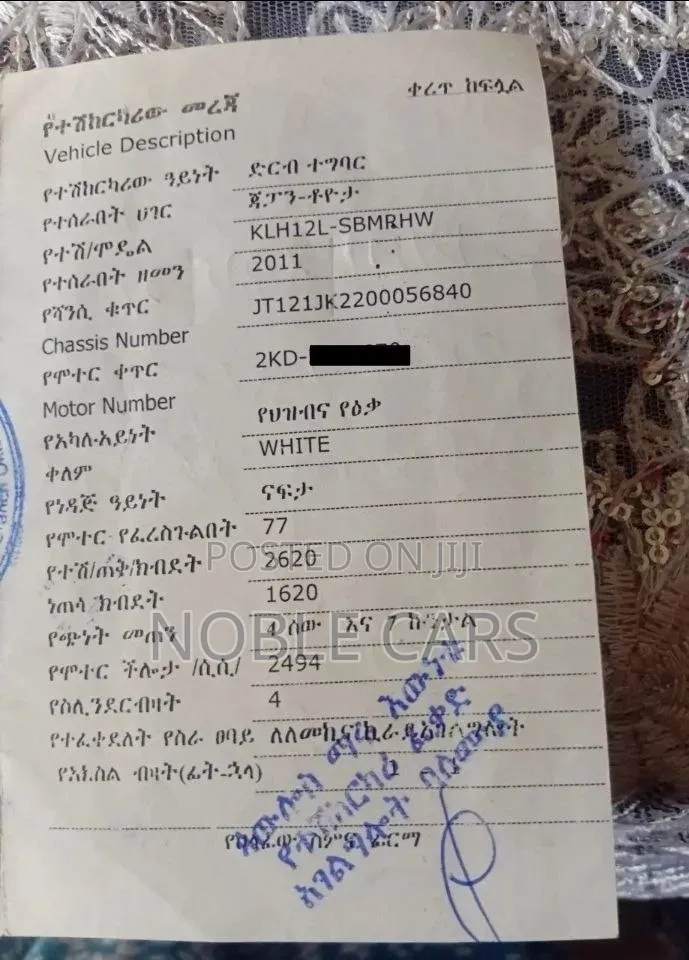 ቀረጥ ከፍሏል
የተሽከርካሪው መረጃ
Vehicle Description
የተሽከርካሪው ዓይነት ድርብ ተግባር
የተሰራበት ሀገር ጃፓን-ቶዮታ
የተሽ/ሞዴል KLH12L-SBMRHW
የተሰራበት ዘመን 2011
የሻንሲ ቁጥር JT121JK2200056840
Chassis Number
የሞተር ቀጥር 2KD-
Motor Number
የአካሉአይነት የህዝብና የዕቃ
ቀለም WHITE
የነዳጅ ዓይነት ናፍታ
የሞተር የፈረስጉልበት 77
POSTED ON JIJI
የተሽ/ጠቅ/ክብደት 2620
ነጠላ ክብደት 1620
NOBLE CARS
የጭነት መጠን 4 ሰው እና 7 ኩንታል
የሞተር ችሎታ /ሲ.ሲ/ 2494
የስሊንደርብዛት 4
የተፈቀደለት የስራ ፀባይ
የአክስል ብዛት(ፊት-ኋላ)
ፊርማ